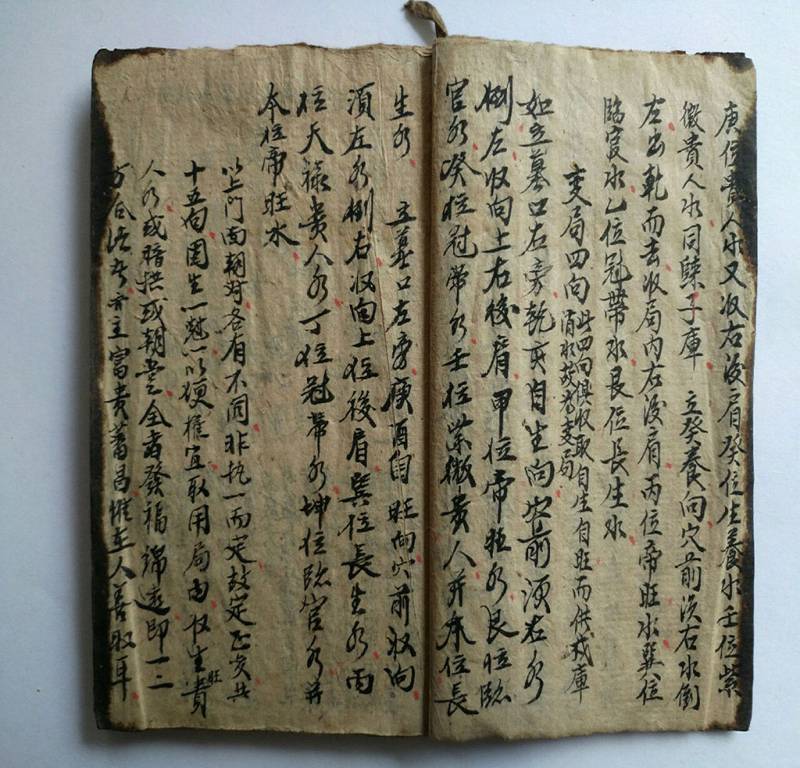 庚位貴人水又收右後肩癸位生養水壬位紫
微貴人水同歸子庫 立癸養向穴前須右水倒
左出乾而去收局內右後肩丙位帝旺水巽位
臨官水乙位冠帶水艮位長生水
变局四向 此四向俱收取自生自旺而供戌庫
消水故为变局
如立墓口右旁乾亥自生向穴前須右水
倒左收向上右後肩甲位帝旺水艮位臨
官水癸位冠帶水壬位紫微貴人并本位長
生水 立墓口左旁庚酉自旺向穴前收向
須左水倒右收向上位後肩巽位長生水丙
位天祿貴人水丁位冠帶水坤位臨官水并
本位帝旺水
以上門面朝对各有不同非执一而定故定正亥共
十五向因生一 以便推宜取用局内收生旺貴
人水或暗拱或朝堂全者發福綿遠即一二
方合法者亦主富贵蕃昌惟在人善取耳